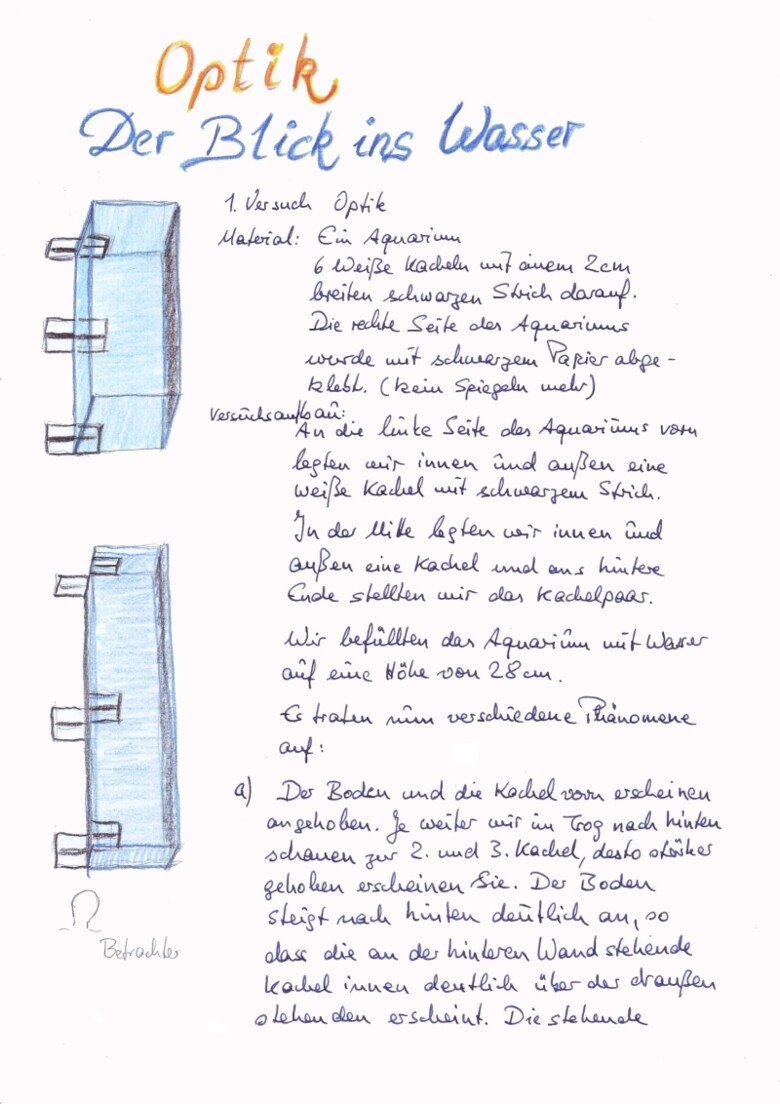 Optik
Der Blick ins Wasser
1. Versuch Optik
Material: Ein Aquarium
6 Weiße Kacheln mit einem 2cm
breiten schwarzen Strich darauf.
Die rechte Seite des Aquariums
wurde mit schwarzem Papier abge-
klebt. (kein Spiegeln mehr)
Versuchsaufbau:
An die linke Seite des Aquariums vorn
legten wir innen und außen eine
weiße Kachel mit schwarzem Strich.
In der Mitte legten wir innen und
außen eine Kachel und ans hintere
Ende stellten wir das Kachelpaar.
Wir befüllten das Aquarium mit Wasser
auf eine Höhe von 28cm.
Es traten nun verschiedene Phänomene
auf:
a) Der Boden und die Kachel vorn erscheinen
angehoben. Je weiter wir im Trog nach hinten
schauen zur 2. und 3. Kachel, desto stärker
gehoben erscheinen Sie. Der Boden
steigt nach hinten deutlich an, so
dass die an der hinteren Wand stehende
Kachel innen deutlich über der draußen
stehenden erscheint. Die stehende
Betrachter